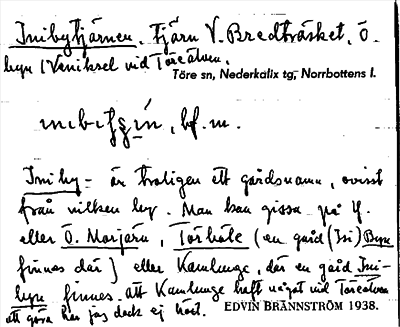 Inibytjärnen, tjärn V. Bredträsket, Ö.
byn (Väniksel vid Töreälven.
Töre sn, Nederkalix tg, Norrbottens l.
bf. m.
Iniby- är troligen ett gårdsnamn, ovisst
från vilken by. Man kan gissa på Y.
eller Ö. Morjärv, Torhåle (en gård (Ini) Byn
finnes där) eller Kamlunge, där en gård Ini-
byn finnes. Att Kamlunge haft något vid Töreälven
att göra har jag dock ej hört. EDVIN BRÄNNSTRÖM 1938.